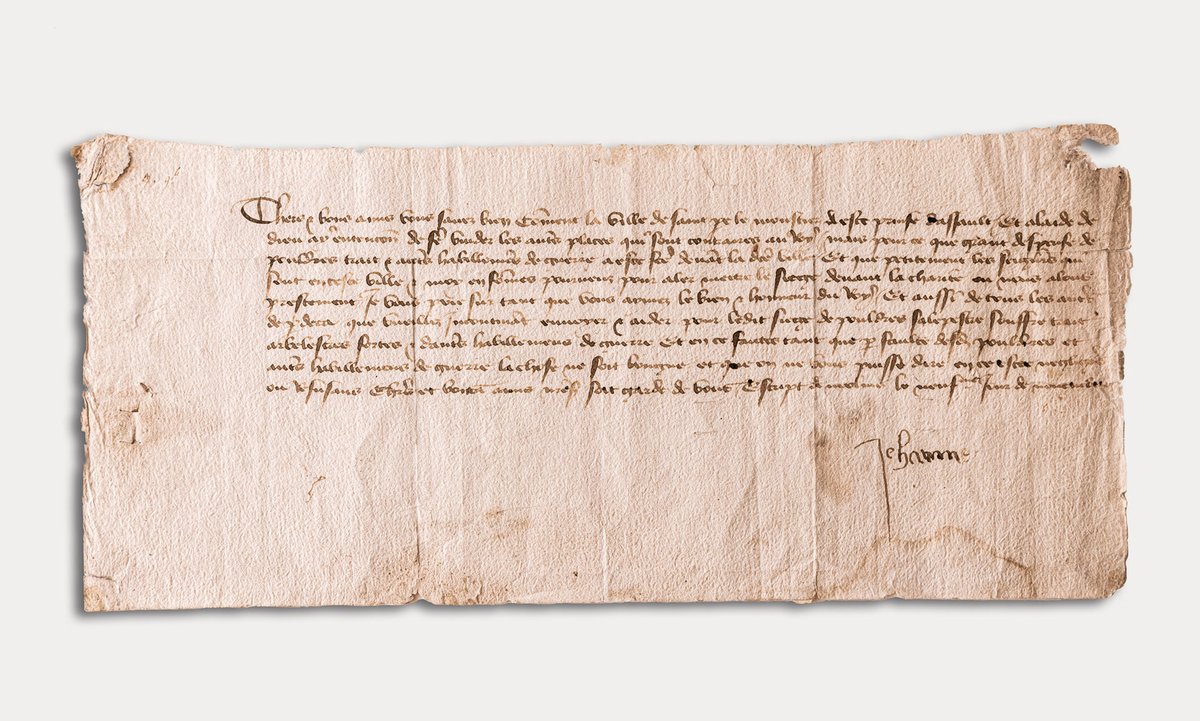 Chers et bons amis vous savez bien Comment la ville de saint pere le moustier a este prinse dassault Et a laide de
dieu ay entencion de fe vuider les autres places qui sont contraires au Roy mais pour ce que grant despense de
pouldres trait et autres habillemens de guerre a este fcte devant la dcte ville Et que petitement les seigneurs qui
sont en ceste ville et moy en sommes pourveuz pour aler mectre le siege devant la charite ou nous alons
prestement Je vous prie sur tant que vous aymez le bien et honneur du Roy Et aussi de tous les autres
de par deca que vueillez Incontinant envoyer et aider pour ledit siege de pouldres salepestre souffre trait
arbelestres fortes et dautres habillemens de guerre Et en ce faictes tant que par faulte desd pouldres et
autres habillemens de guerre la chose ne soit longue et que on ne vous puisse dire en ce estre negligens
ou Refusans Chers et bons amis nres soit garde de vous Escript a molins le neufme Jour de novembre
Jehanne